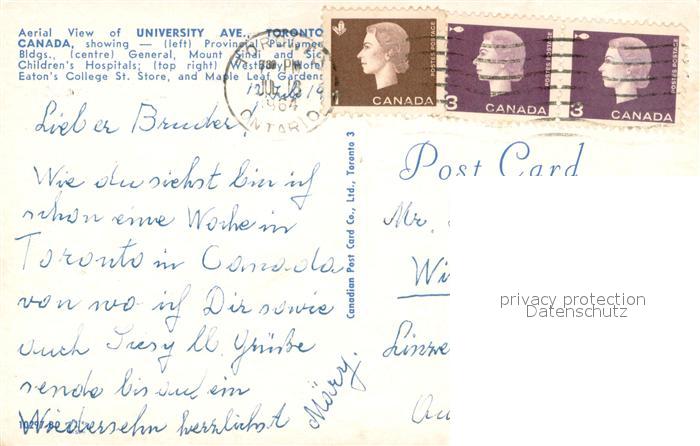 Aerial View of UNIVERSITY AVE., TORONTO
CANADA, showing — (left) Provincial Parliament
Bldgs., (centre) General, Mount Sinai and Sick
Children's Hospitals; (top right) Westbury Hotel
Eaton's College St. Store, and Maple Leaf Gardens
PM
1964
ONTARIO
POSTES POSTAGE
1 CANADA
POSTES POSTAGE
3 CANADA
POSTES POSTAGE
3 CANADA
Lieber Bruder,
Wie du siehst bin ich
schon eine Woche in
Toronto in Canada
von wo ich Dir sowie
auch Liesy ll. Grüße
sende bis auf ein
Wiedersehn herzlichst
Märy.
Canadian Post Card Co., Ltd., Toronto 3
Post Card
Mr.
Wi
Linze
privacy protection
Datenschutz